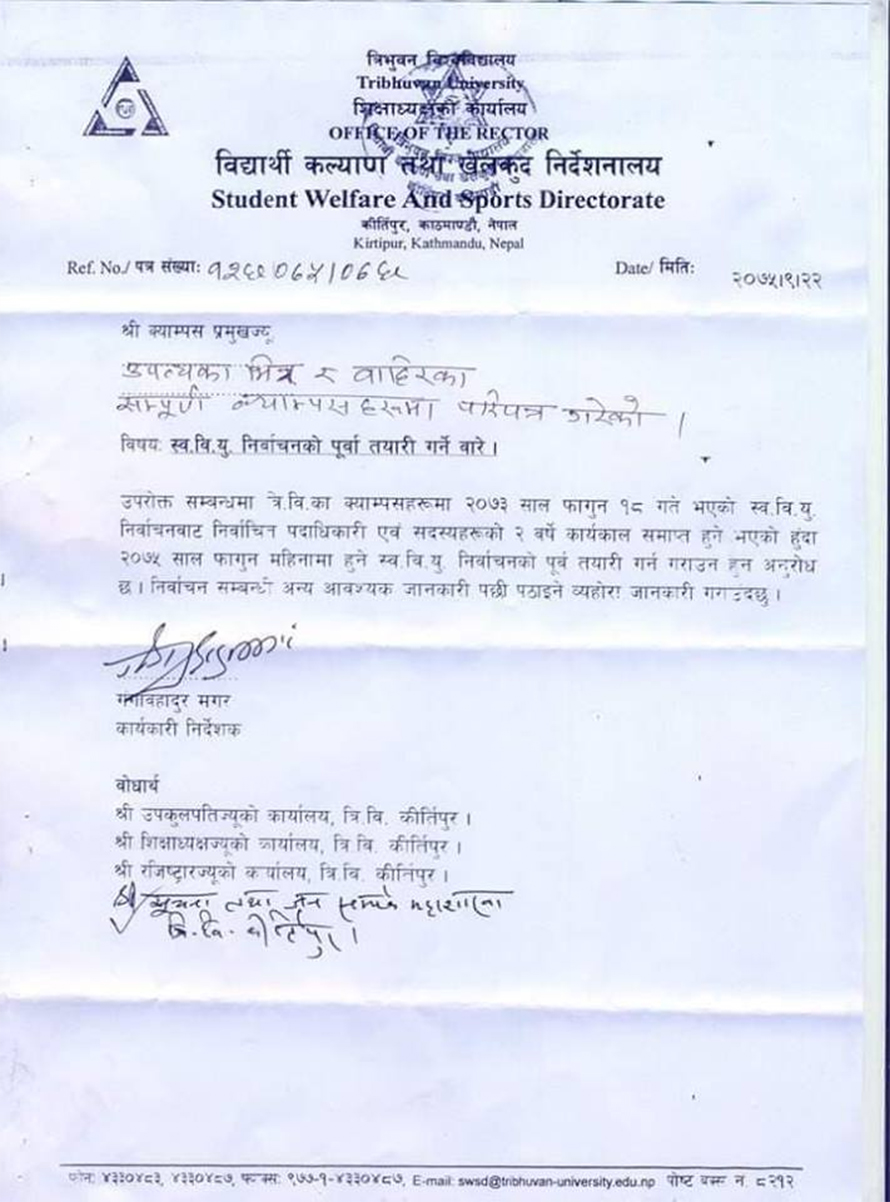 त्रिभुवन विश्वविद्यालय
Tribhuvan University
शिक्षाध्यक्षको कार्यालय
OFFICE OF THE RECTOR
विद्यार्थी कल्याण तथा खेलकुद निर्देशनालय
Student Welfare And Sports Directorate
कीर्तिपुर, काठमाण्डौ, नेपाल
Kirtipur, Kathmandu, Nepal
Ref. No./ पत्र संख्याः
Date/ मितिः २०७५।९।२२
श्री क्याम्पस प्रमुखज्यू
उपत्यका भित्र र वाहिरका
सम्पूर्ण क्याम्पसहरूमा परिपत्र गरेको ।
विषय: स्व.वि.यु. निर्वाचनको पूर्वा तयारी गर्ने वारे ।
उपरोक्त सम्बन्धमा त्रे.वि.का क्याम्पसहरूमा २०७३ साल फागुन १८ गते भएको स्व.वि.यु.
निर्वाचनबाट निर्वाचित पदाधिकारी एवं सदस्यहरूको २ वर्षे कार्यकाल समाप्त हुने भएको हुंदा
२०७५ साल फागुन महिनामा हुने स्व.वि.यु. निर्वाचनको पूर्व तयारी गर्न गराउन हुन अनुरोध
छ । निर्वाचन सम्बन्धी अन्य आवश्यक जानकारी पछी पठाइने व्यहोरा जानकारी गराउंदछु ।
गंगावहादुर मगर
कार्यकारी निर्देशक
वोधार्थ
श्री उपकुलपतिज्यूको कार्यालय, त्रि.वि. कीर्तिपुर ।
श्री शिक्षाध्यक्षज्यूको कार्यालय, त्रि.वि. कीर्तिपुर ।
श्री रजिष्ट्रारज्यूको कार्यालय, त्रि.वि. कीर्तिपुर ।
श्री सूचना तथा जन सम्पर्क महाशाखा
त्रि.वि. कीर्तिपुर ।
फोन: ४३३०४८३, ४३३०४८७, फ्याक्स: ९७७-१-४३३०४८७, E-mail: swsd@tribhuvan-university.edu.np पोष्ट बक्स नं. ८२१२